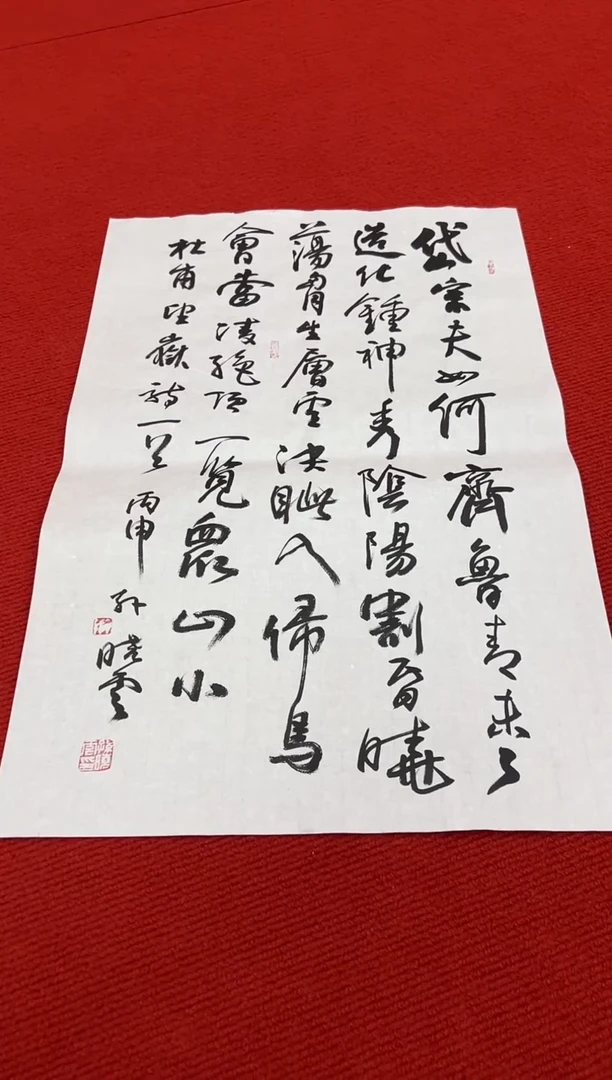 岱宗夫如何齊魯青未了
造化鍾神秀陰陽割昏曉
蕩胷生層雲決眥入歸鳥
會當凌絕頂一覽眾山小
杜甫望嶽詩一首 丙申 孫曉雲